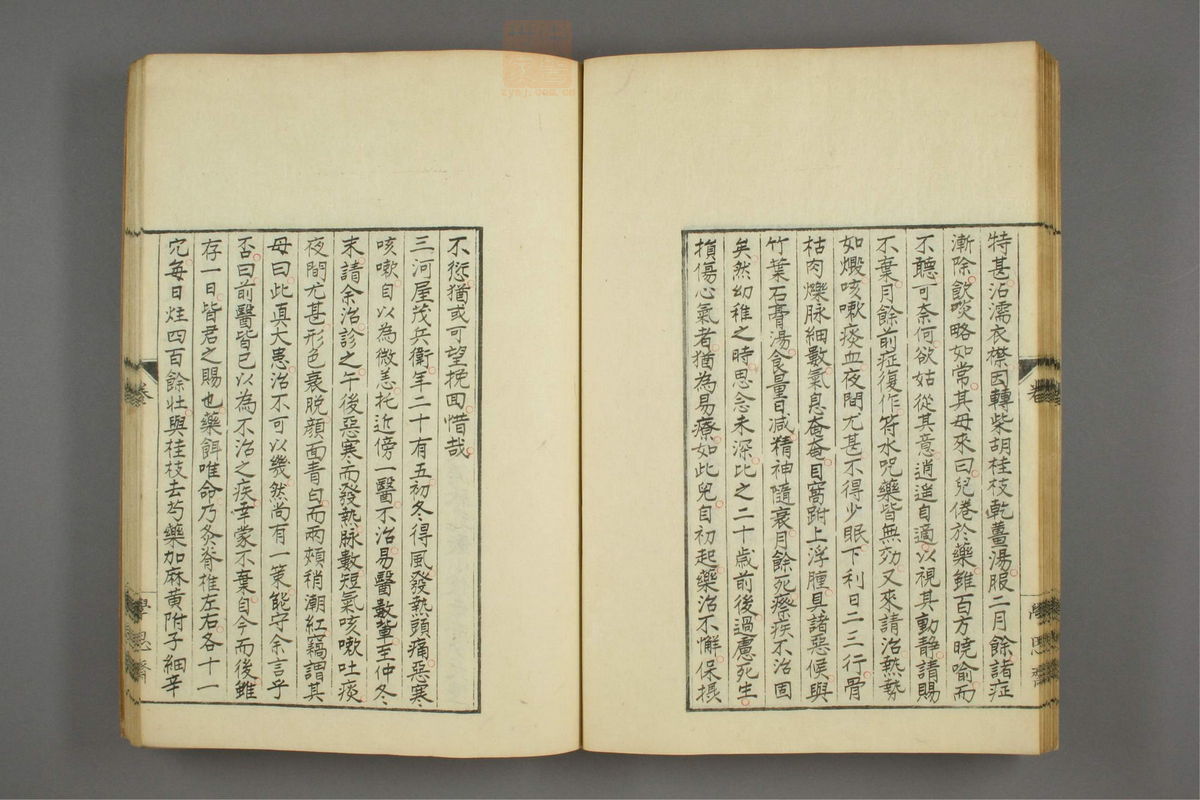 特甚沾濡衣襟因轉柴胡桂枝乾薑湯服二月餘諸症
漸除飲啖略如常其母來曰兒倦於藥雖百方曉喻而
不聽可奈何欲姑從其意逍遥自適以視其動靜請賜
不棄月餘前症復作符水呪藥皆無効又來請治熱勢
如燬咳嗽痰血夜間尤甚不得少眠下利日二三行骨
枯肉爍脉細數氣息奄奄目窩跗上浮腫具諸惡候與
竹葉石膏湯食量日減精神隨衰月餘死瘵疾不治固
矣然幼稚之時思念未深比之二十歲前後過慮死生
損傷心氣者猶為易療如此兒自初起藥治不懈保攝
不愆猶或可望挽回惜哉
三河屋茂兵衛年二十有五初冬得風發熱頭痛惡寒
咳嗽自以為微恙托近傍一醫不治易醫數輩至仲冬
末請余治診之午後惡寒而發熱脉數短氣咳嗽吐痰
夜間尤甚形色衰脱顏面青白而兩頰稍潮紅竊謂其
母曰此真大患治不可以幾然尚有一策能守余言乎
否曰前醫皆已以為不治之疾幸蒙不棄自今而後雖
存一日皆君之賜也藥餌唯命乃灸脊椎左右各十一
穴每日炷四百餘壯與桂枝去芍藥加麻黃附子細辛
卷
學思齋